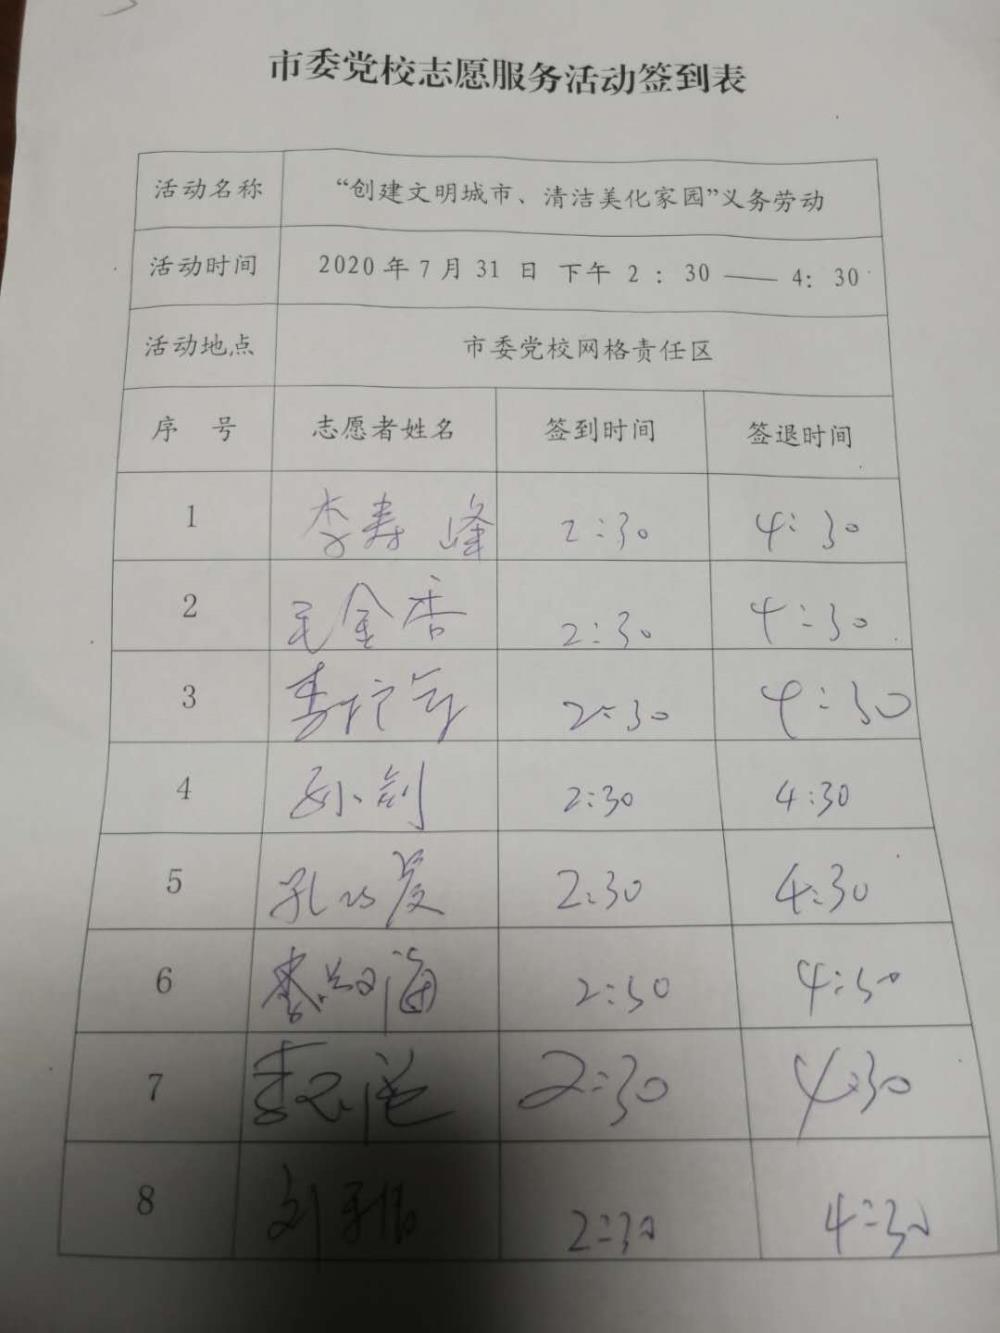 市委党校志愿服务活动签到表
活动名称 “创建文明城市、清洁美化家园”义务劳动
活动时间 2020年7月31日 下午 2:30——4:30
活动地点 市委党校网格责任区
序 号 志愿者姓名 签到时间 签退时间
1 李寿峰 2:30 4:30
2 毛金香 2:30 4:30
3 2:30 4:30
4 孙剑 2:30 4:30
5 孔 2:30 4:30
6 李 海 2:30 4:30
7 李 2:30 4:30
8 刘 2:30 4:30